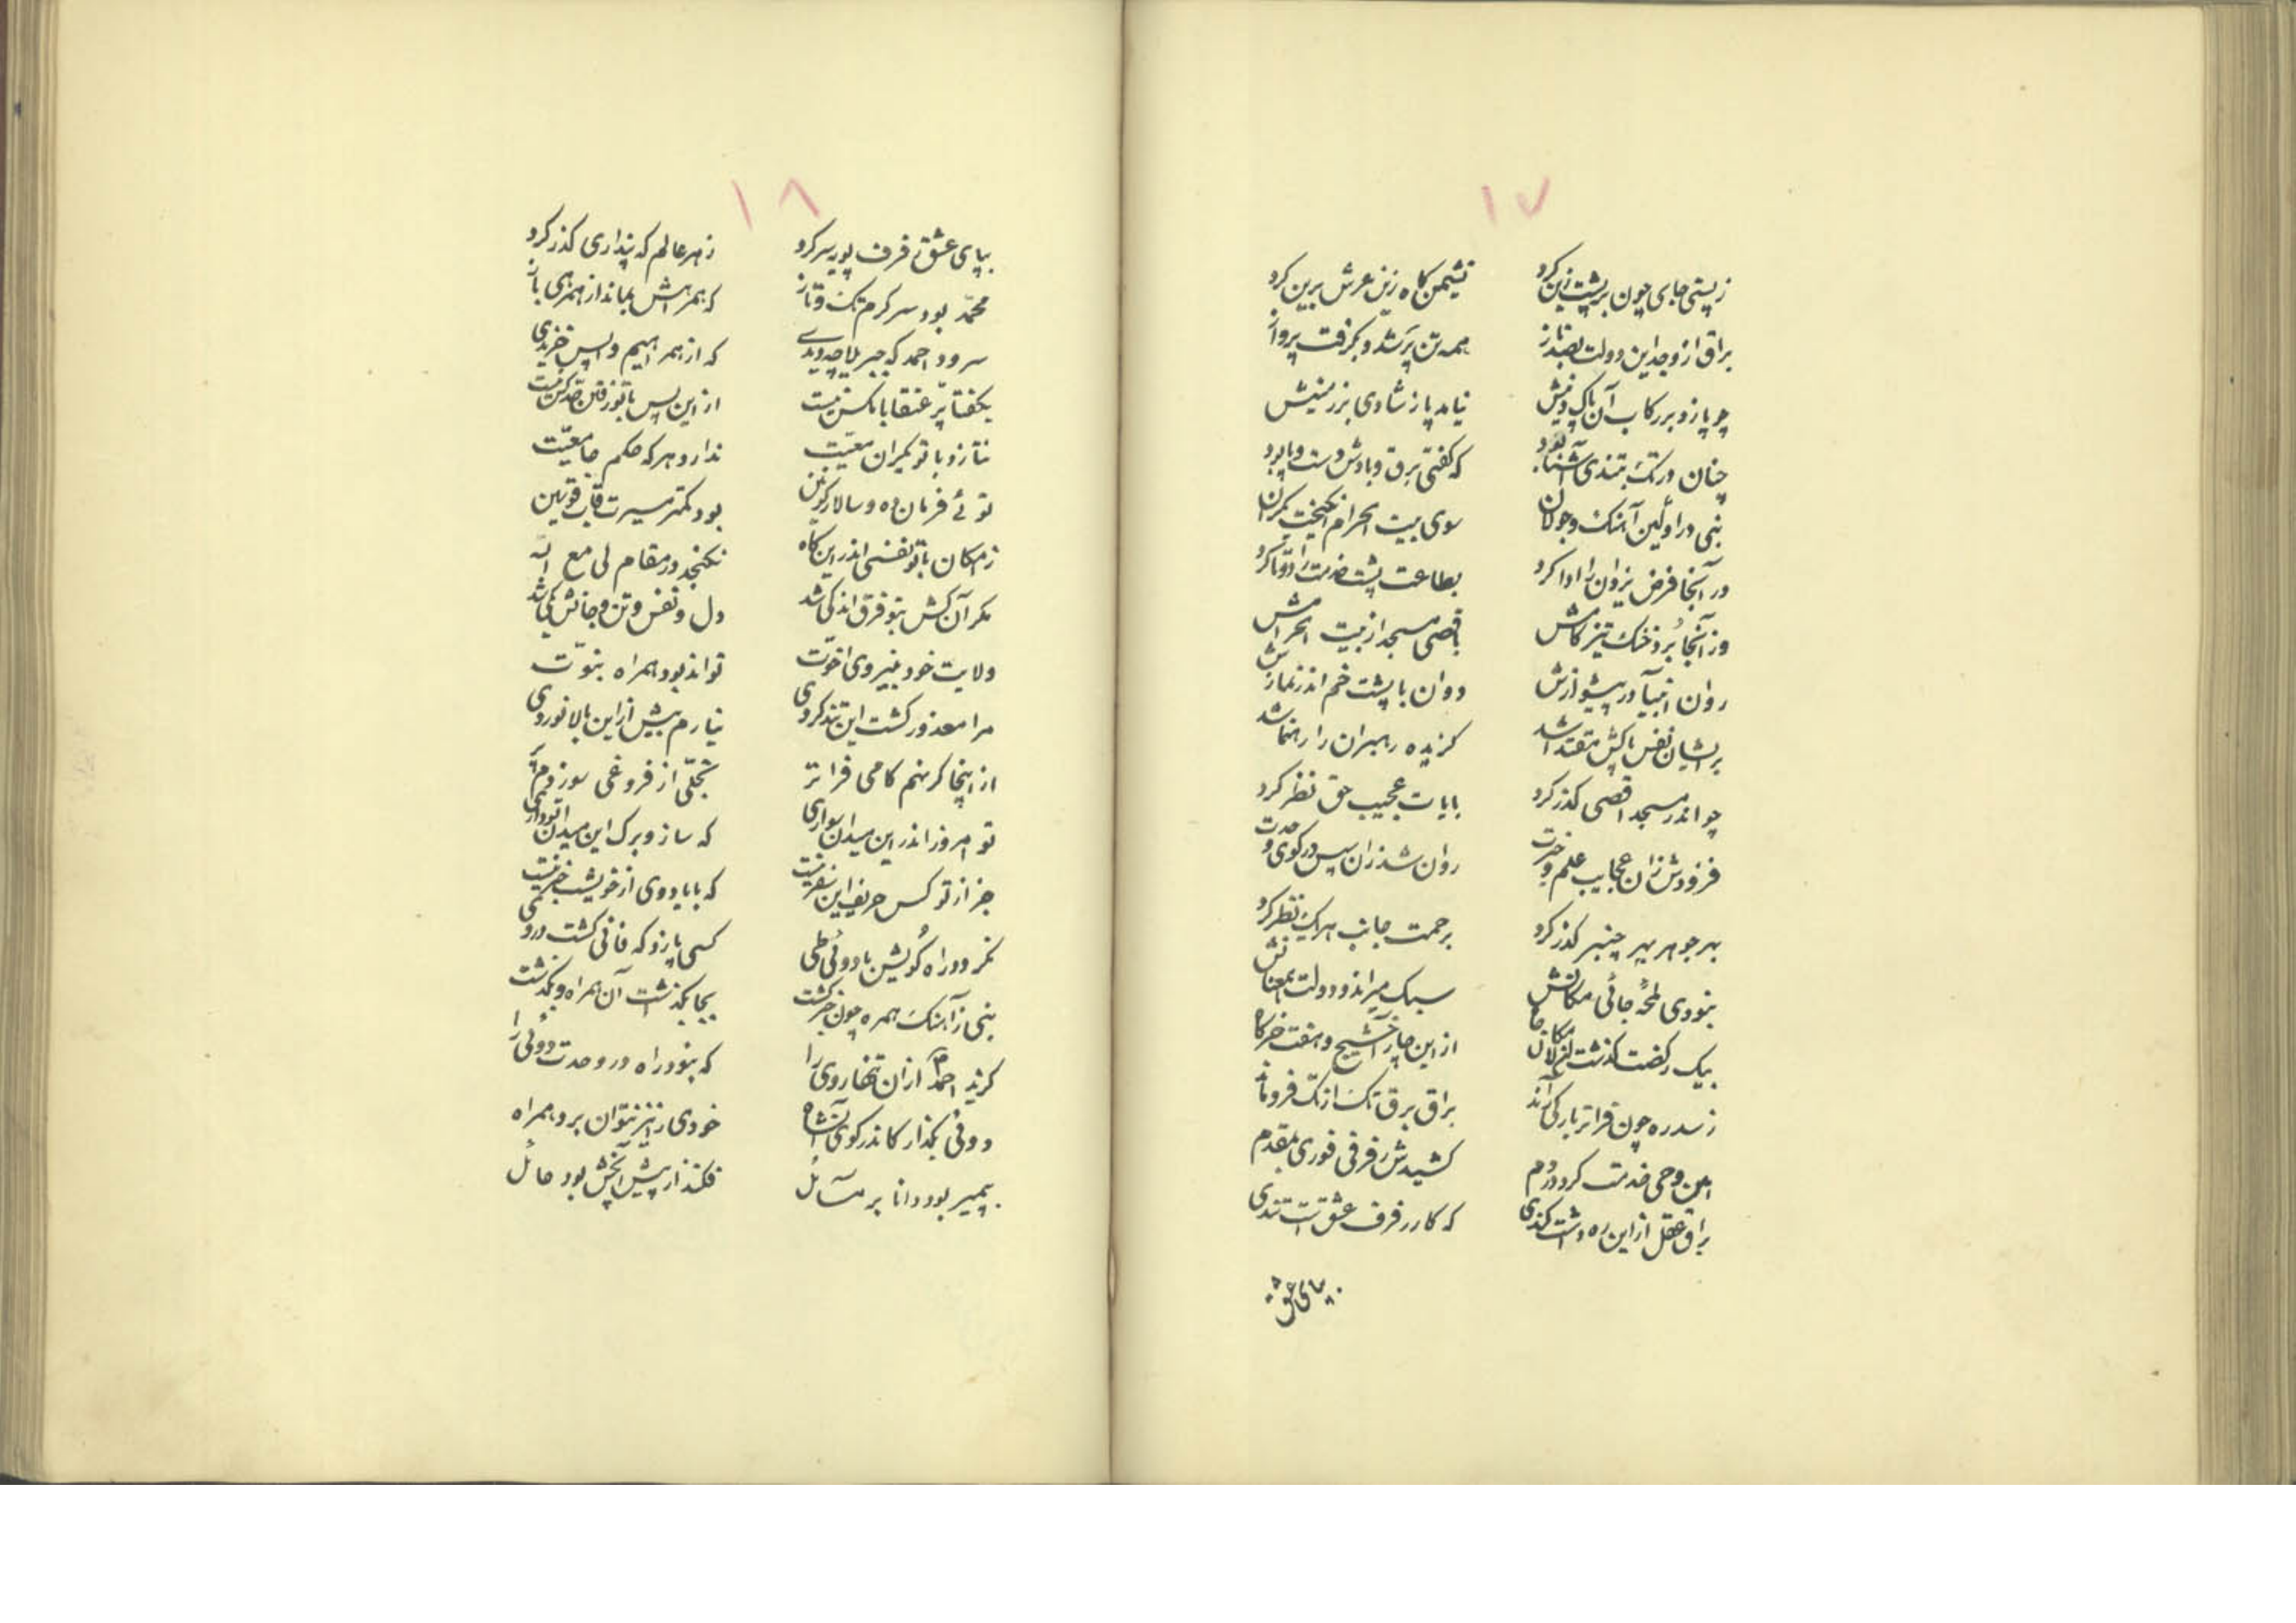 ۱۷
ز پستی جای چون بر پشت زین کرد نشیمن کاه زین عرش برین کرد
براق از وجد این دولت بصد ناز همه تن پر شد و بکرفت پرواز
چو پا زد بر رکاب آن پاک نیامد پا ز شادی بر زمینش
چنان در تک بتندی آشنا بود که کفتی برق و بادش دست و پا بود
نبی در اولین آهنک و جولان سوی بیت الحرام انکیخت یکران
در آنجا فرض یزدان را ادا کرد بطاعت پشت خدمت را دوتا کرد
وز آنجا برد خنک تیز کامش باقصی مسجد از بیت الحرامش
روان انبیا در پیشوازش دوان با پشت خم اندر نمازش
بر ایشان نفس پاکش مقتدا شد کزیده رهبران را رهنما شد
چو اندر مسجد اقصی کذر کرد بایات عجیب حق نظر کرد
فزودش زان عجایب علم و حیرت روان شد زان سپس در کوی وحدت
بهر جوهر بهر چنبر کذر کرد برحمت جانب هر یک نظر کرد
نبودی لمحهٔ جائی مکانش سبک میراند و دولت همعنانش
بیک رکضت کذشت از این چار آخشیج و هفت خرکاه
ز سدره چون فراتر بارکی راند براق برق تک از تک فرو ماند
امین وحی خدمت کرد در دم کشیدش رفرفی فوری بمقدم
براق عقل از این ره داشت کندی که کار رفرف عشق است تندی
بپای عشق
۱۸
بپای عشق رفرف پویه سر کرد ز هر عالم که پنداری کذر کرد
محمد بود سرکرم تک و تاز که همراهش بماند از همرهی باز
سرود احمد که جبریلا چه دیدی که از همراهیم واپس خزیدی
بکفتا پر عنقا با مکس نیست از این پس با تو رفتن حد کس نیست
نتازد با تو یکران معیت ندارد هر که حکم جامعیت
توئی فرمان ده و سالار کونین بود کمتر مسیرت قاب قوسین
ز امکان با تو نفسی اندر این کاه نکنجد در مقام لی مع الله
مکر آن کش بتو فرق اندکی شد دل و نفس و تن و جانش یکی شد
ولایت خود بنیروی اخوت تواند بود همراه نبوت
مرا معذور کشت این تند کردی نیارم بیش از این بالا نوردی
از اینجا کر نهم کامی فراتر تجلی از فروغی سوزدم پر
تو امروز اندر این میدان سواری که ساز و برک این میدان تو داری
جز از تو کس حریف این سفر نیست که با یادوی از خویشت خبر نیست
نکردد راه کویش با دوئی طی کسی پا زد که فانی کشت در وی
نبی ز آهنک همره چون خبر کشت بجا بکذشت آن همراه و بکذشت
کزید احمد از آن تنها روی را که نبود راه در وحدت دوئی را
دوئی بکذار کاندر کوی آنشاه خودی را نیز نتوان برد همراه
پیمبر بود دانا بر مسائل فکند از پیش آنچش بود حائل